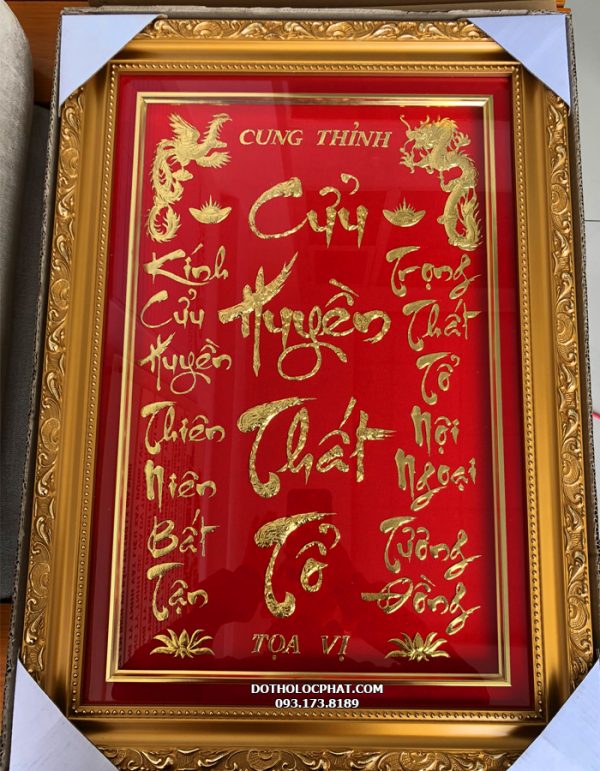 CUNG THỈNH
Cửu
Huyền
Thất
Tổ
Kính
Cửu
Huyền
Thiên
Niên
Bất
Tận
Trọng
Thất
Tổ
Nội
Ngoại
Tương
Đồng
TỌA VỊ
DOTHOLOCPHAT.COM
093.173.8189